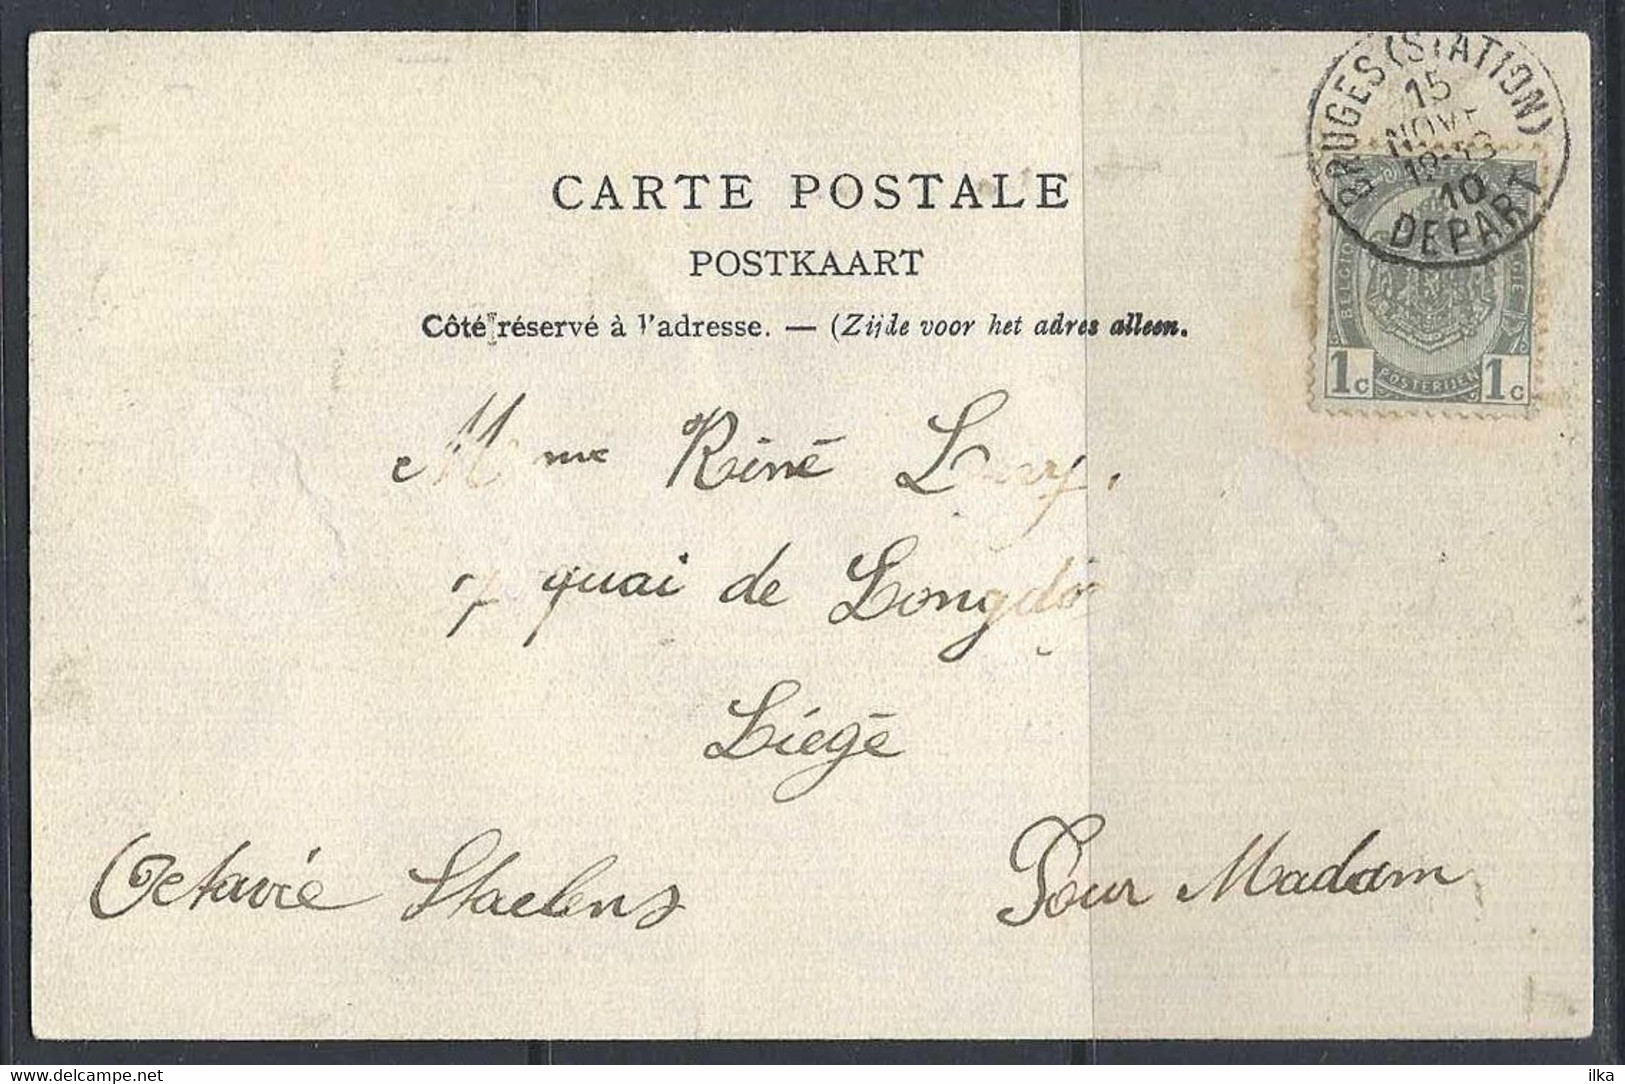 BRUGES (STATION)
15
NOVE
10
DEPART
CARTE POSTALE
POSTKAART
Côté réservé à l'adresse. — (Zijde voor het adres alleen.
BELGIQUE BELGIË
1c POSTERIJEN 1c
Mme Réné
7 quai de Longdoz
Liégé
Octavie Staelens
Pour Madam
ilka